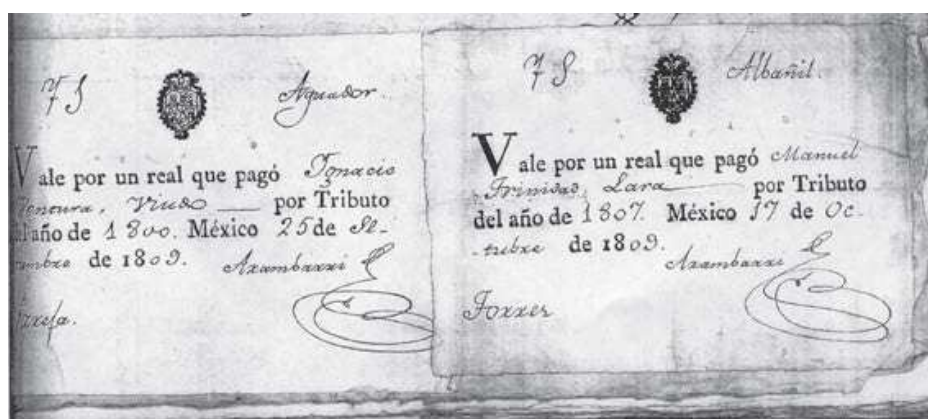 7 S Aguador.
Vale por un real que pagó Ignacio
Ventura, Viudo por Tributo
del año de 1800. México 25 de Se-
tiembre de 1809.
Axambarri
7 S Albañil.
Vale por un real que pagó Manuel
Trinidad, Lara por Tributo
del año de 1807. México 17 de Oc-
tubre de 1809.
Axambarri
Torres